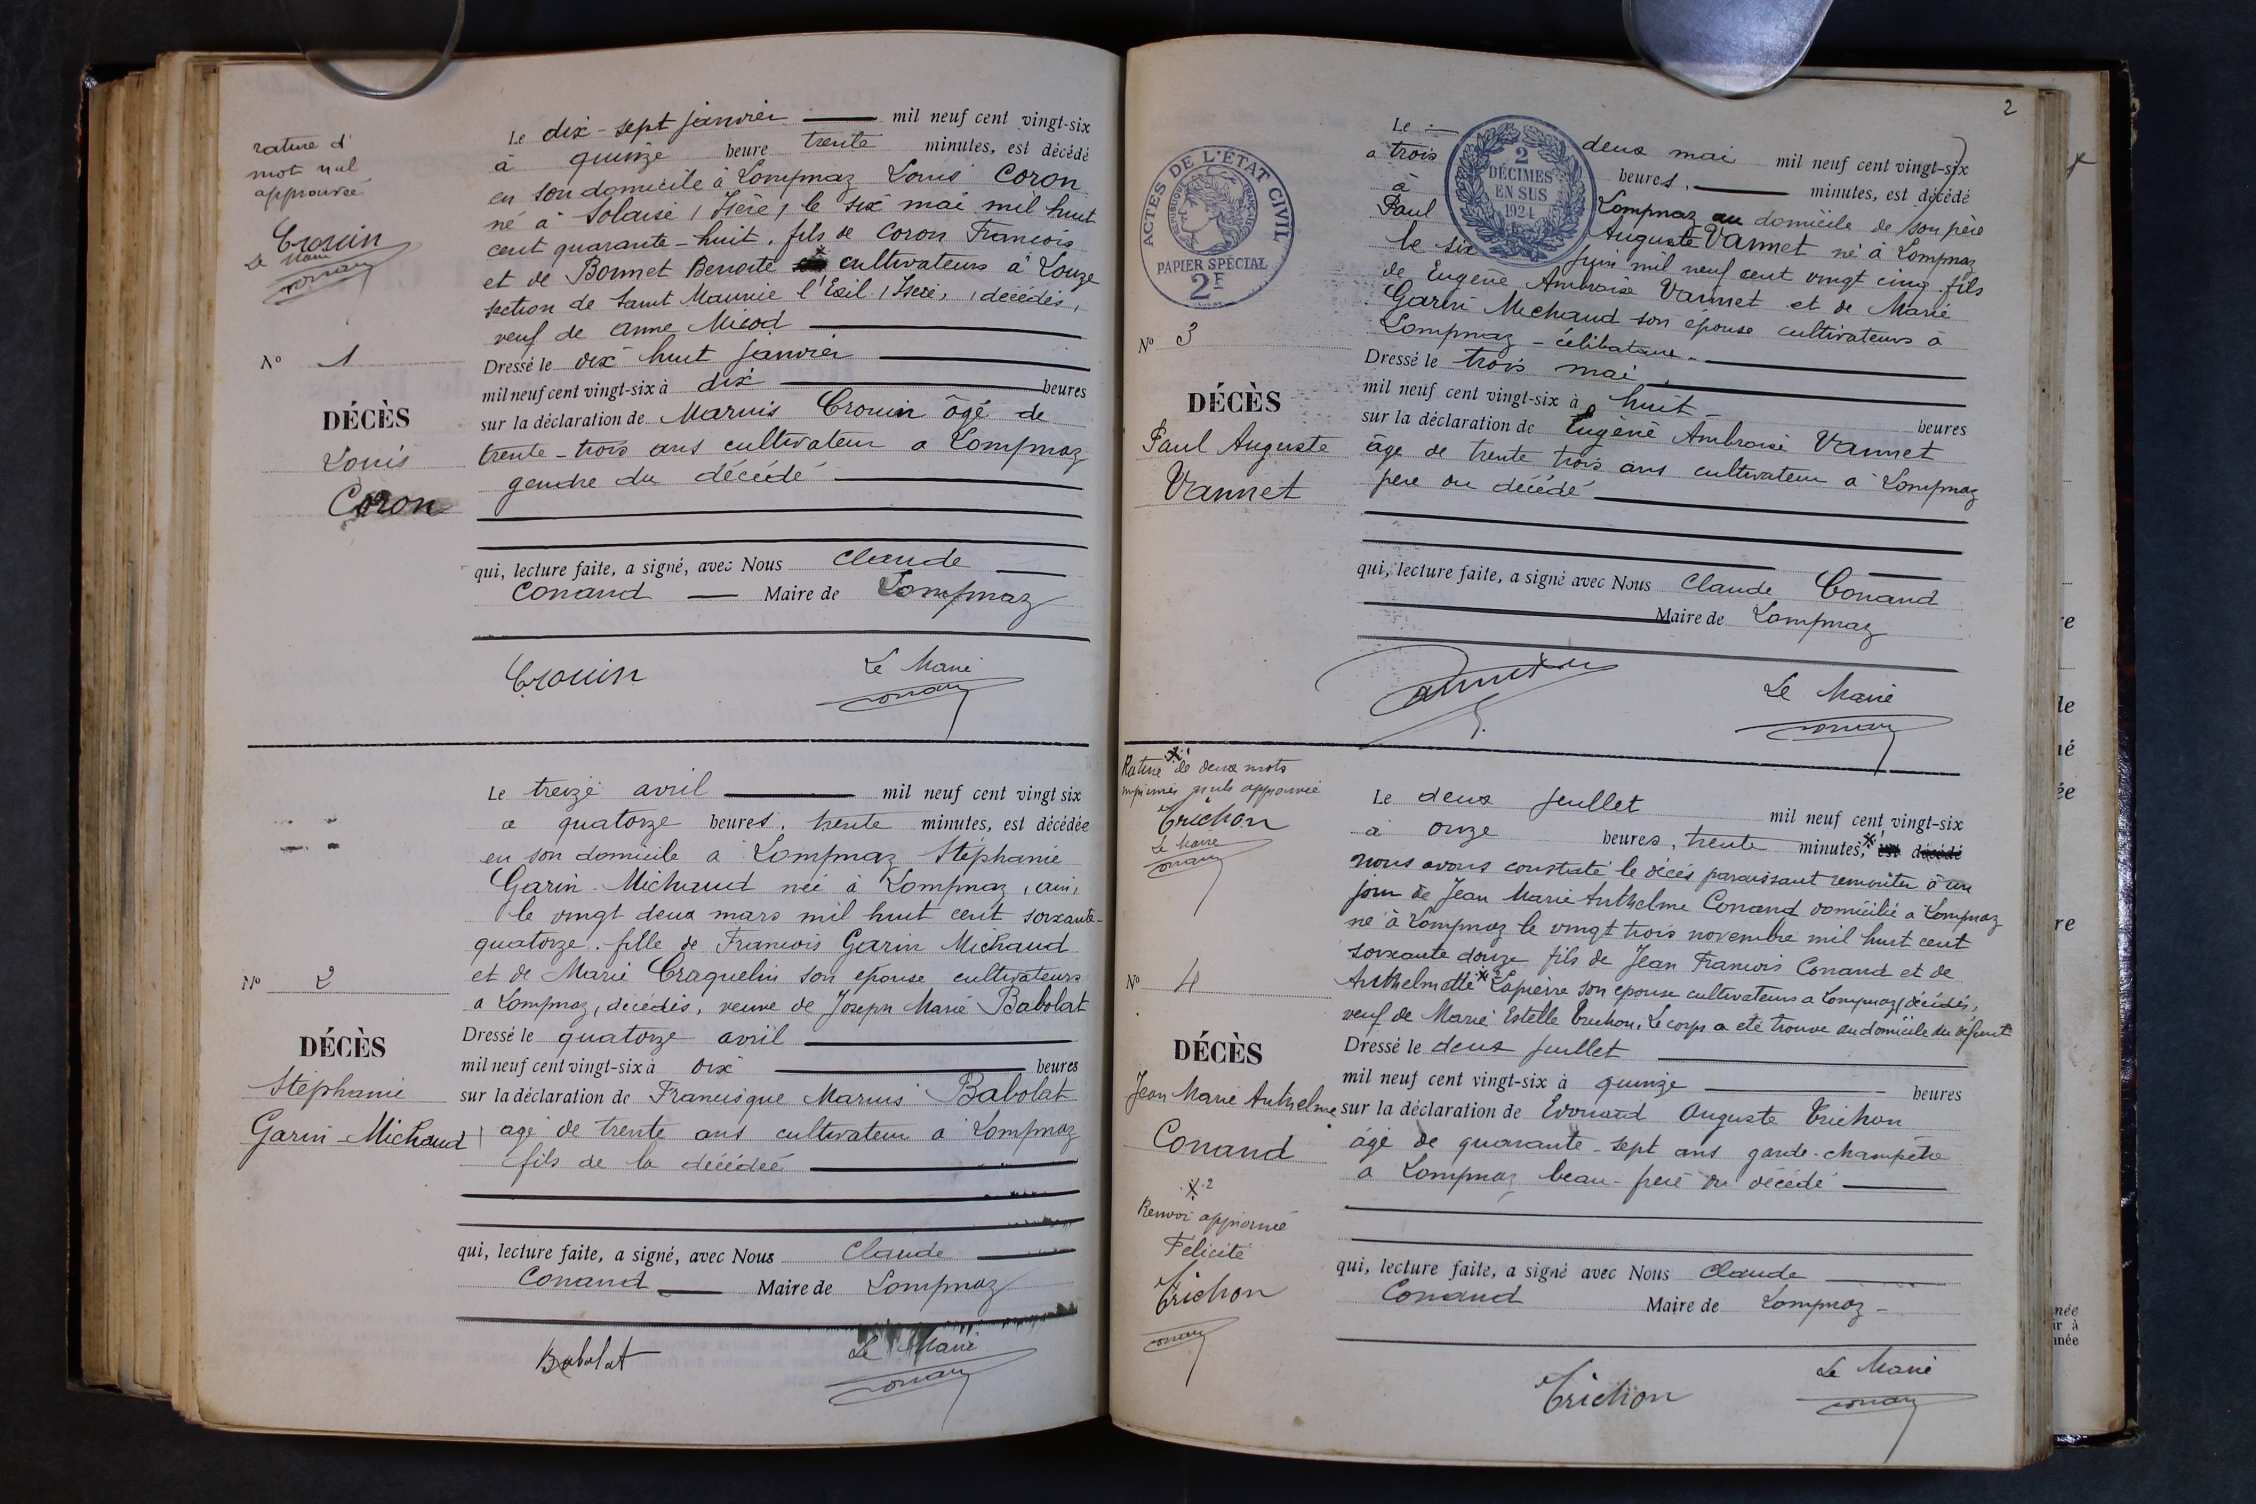 rature d'
mot nul
approuvée
Crouin
Le Maire
Conand
N° 1
DÉCÈS
Louis
Coron
Le dix-sept janvier mil neuf cent vingt-six
à quinze heure trente minutes, est décédé
en son domicile à Lompnaz Louis Coron
né à Solaise (Isère) le six mai mil huit
cent quarante-huit, fils de Coron Francois
et de Bonnet Benoite cultivateurs à Louze
section de Saint Maurice l'Exil (Isère), décédés,
veuf de Anne Micod
Dressé le dix huit janvier
mil neuf cent vingt-six à dix heures
sur la déclaration de Marius Crouin âgé de
trente-trois ans cultivateur a Lompnaz
gendre du décédé
qui, lecture faite, a signé, avec Nous Claude
Conand Maire de Lompnaz
Crouin
Le Maire
Conand
N° 2
DÉCÈS
Stéphanie
Garin-Michaud
Le treize avril mil neuf cent vingt six
a quatorze heures, trente minutes, est décédée
en son domicile a Lompnaz Stéphanie
Garin-Michaud née à Lompnaz, ain,
le vingt deux mars mil huit cent soixante-
quatorze. fille de Francois Garin Michaud
et de Marie Craquelin son épouse cultivateurs
a Lompnaz, décédés, veuve de Joseph Marie Babolat
Dressé le quatorze avril
mil neuf cent vingt-six à dix heures
sur la déclaration de Francisque Marius Babolat
agé de trente ans cultivateur a Lompnaz
fils de la décédée
qui, lecture faite, a signé, avec Nous Claude
Conand Maire de Lompnaz
Babolat
Le Maire
Conand
2
ACTES DE L'ÉTAT CIVIL
RÉPUBLIQUE FRANÇAISE
PAPIER SPÉCIAL
2F
2
DÉCIMES
EN SUS
1924
N° 3
DÉCÈS
Paul Auguste
Vannet
Le deux mai mil neuf cent vingt-six
a trois heures, minutes, est décédé
à Lompnaz au domicile de son père
Paul Auguste Vannet né à Lompnaz
le six juin mil neuf cent vingt cinq fils
de Eugène Ambroise Vannet et de Marie
Garin Michaud son épouse cultivateurs à
Lompnaz - célibataire -
Dressé le trois mai
mil neuf cent vingt-six à huit heures
sur la déclaration de Eugène Ambroise Vannet
âge de trente trois ans cultivateur à Lompnaz
père du décédé
qui, lecture faite, a signé avec Nous Claude Conand
Maire de Lompnaz
Le Maire
Conand
Rature de deux mots
imprimés nuls approuvée
Trichon
Le Maire
Conand
N° 4
DÉCÈS
Jean Marie Anthelme
Conand
x 2
Renvoi approuvé
Félicité
Trichon
Conand
Le deux juillet mil neuf cent vingt-six
à onze heures, trente minutes, est décédé
nous avons constaté le décés paraissant remonter à un
jour de Jean Marie Anthelme Conand domicilié a Lompnaz
né à Lompnaz le vingt trois novembre mil huit cent
soixante douze fils de Jean Francois Conand et de
Anthelmette x2 Lapierre son épouse cultivateurs a Lompnaz, décédés,
veuf de Marie Estelle Trichon, Le corps a été trouvé au domicile du défunt
Dressé le deux juillet
mil neuf cent vingt-six à quinze heures
sur la déclaration de Edouard Auguste Trichon
âgé de quarante-sept ans garde-champêtre
a Lompnaz beau-frère du décédé
qui, lecture faite, a signé avec Nous Claude
Conand Maire de Lompnaz
Trichon
Le Maire
Conand